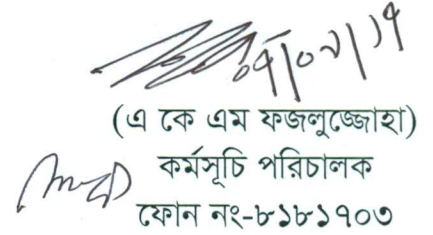 (এ কে এম ফজলুজ্জোহা)
কর্মসূচি পরিচালক
ফোন নং-৮১৮১৭০৩